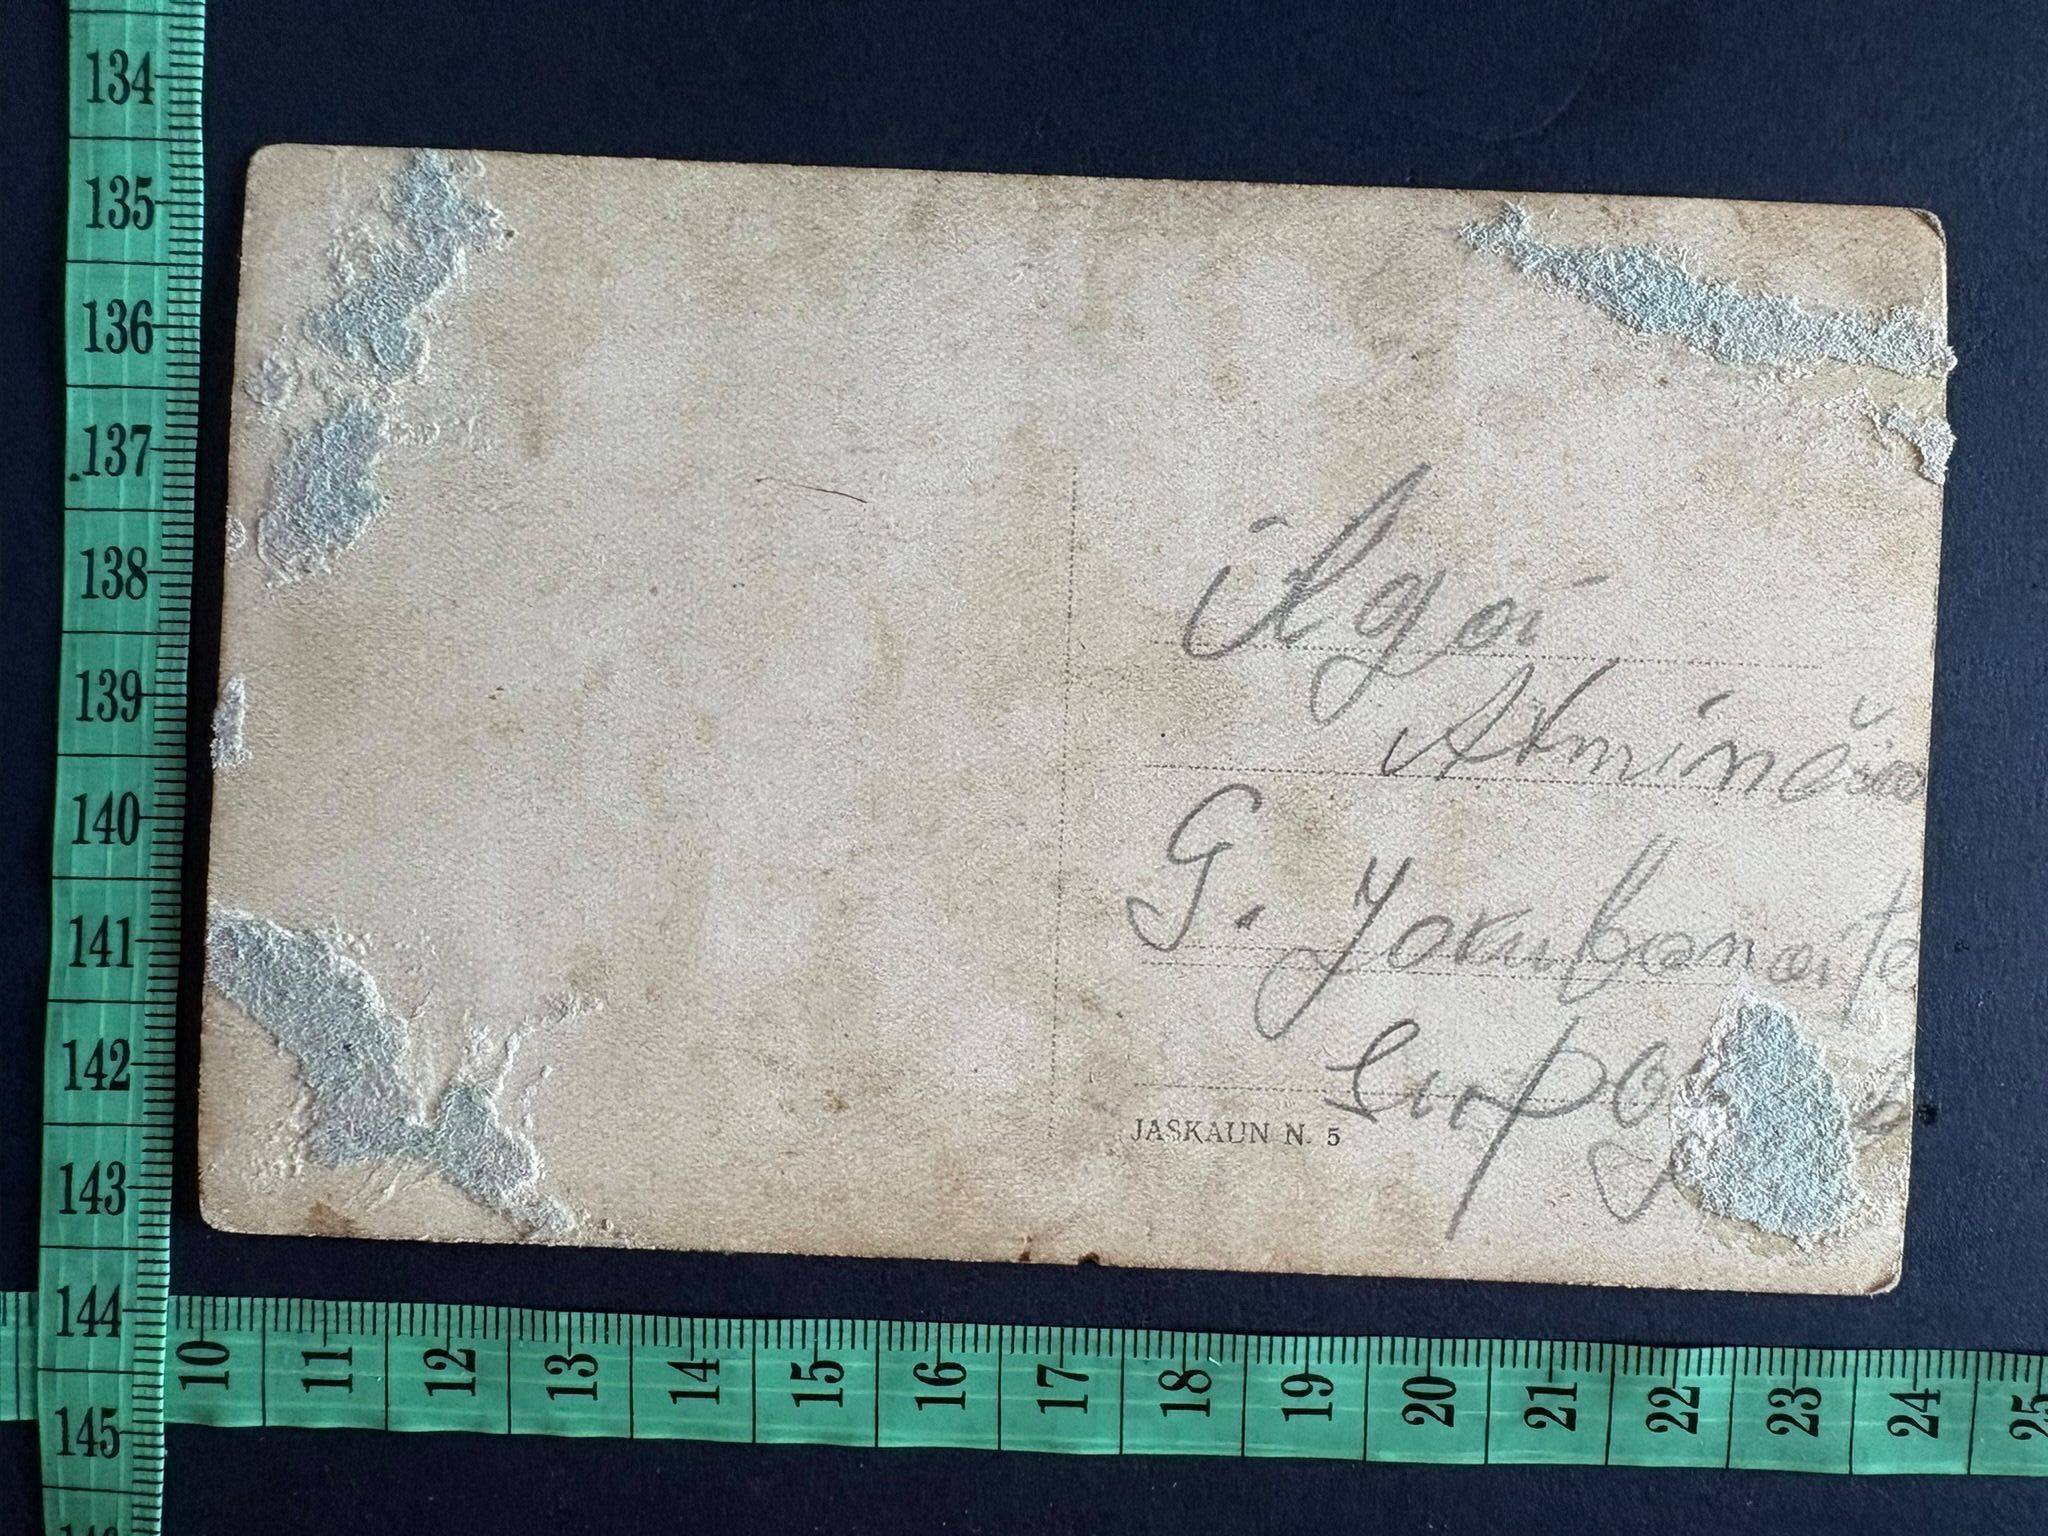 134
135
136
137
138
139
140
141
142
143
144
145
Ilgai
Atminčiai
G. Jokubanaitė
JASKAUN N. 5
10 11 12 13 14 15 16 17 18 19 20 21 22 23 24 25